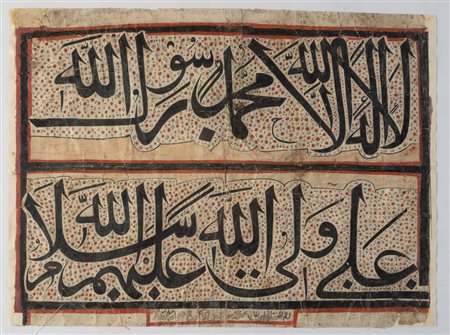 لا اله الا الله محمد رسول الله
علی ولی الله علیهم سلام الله